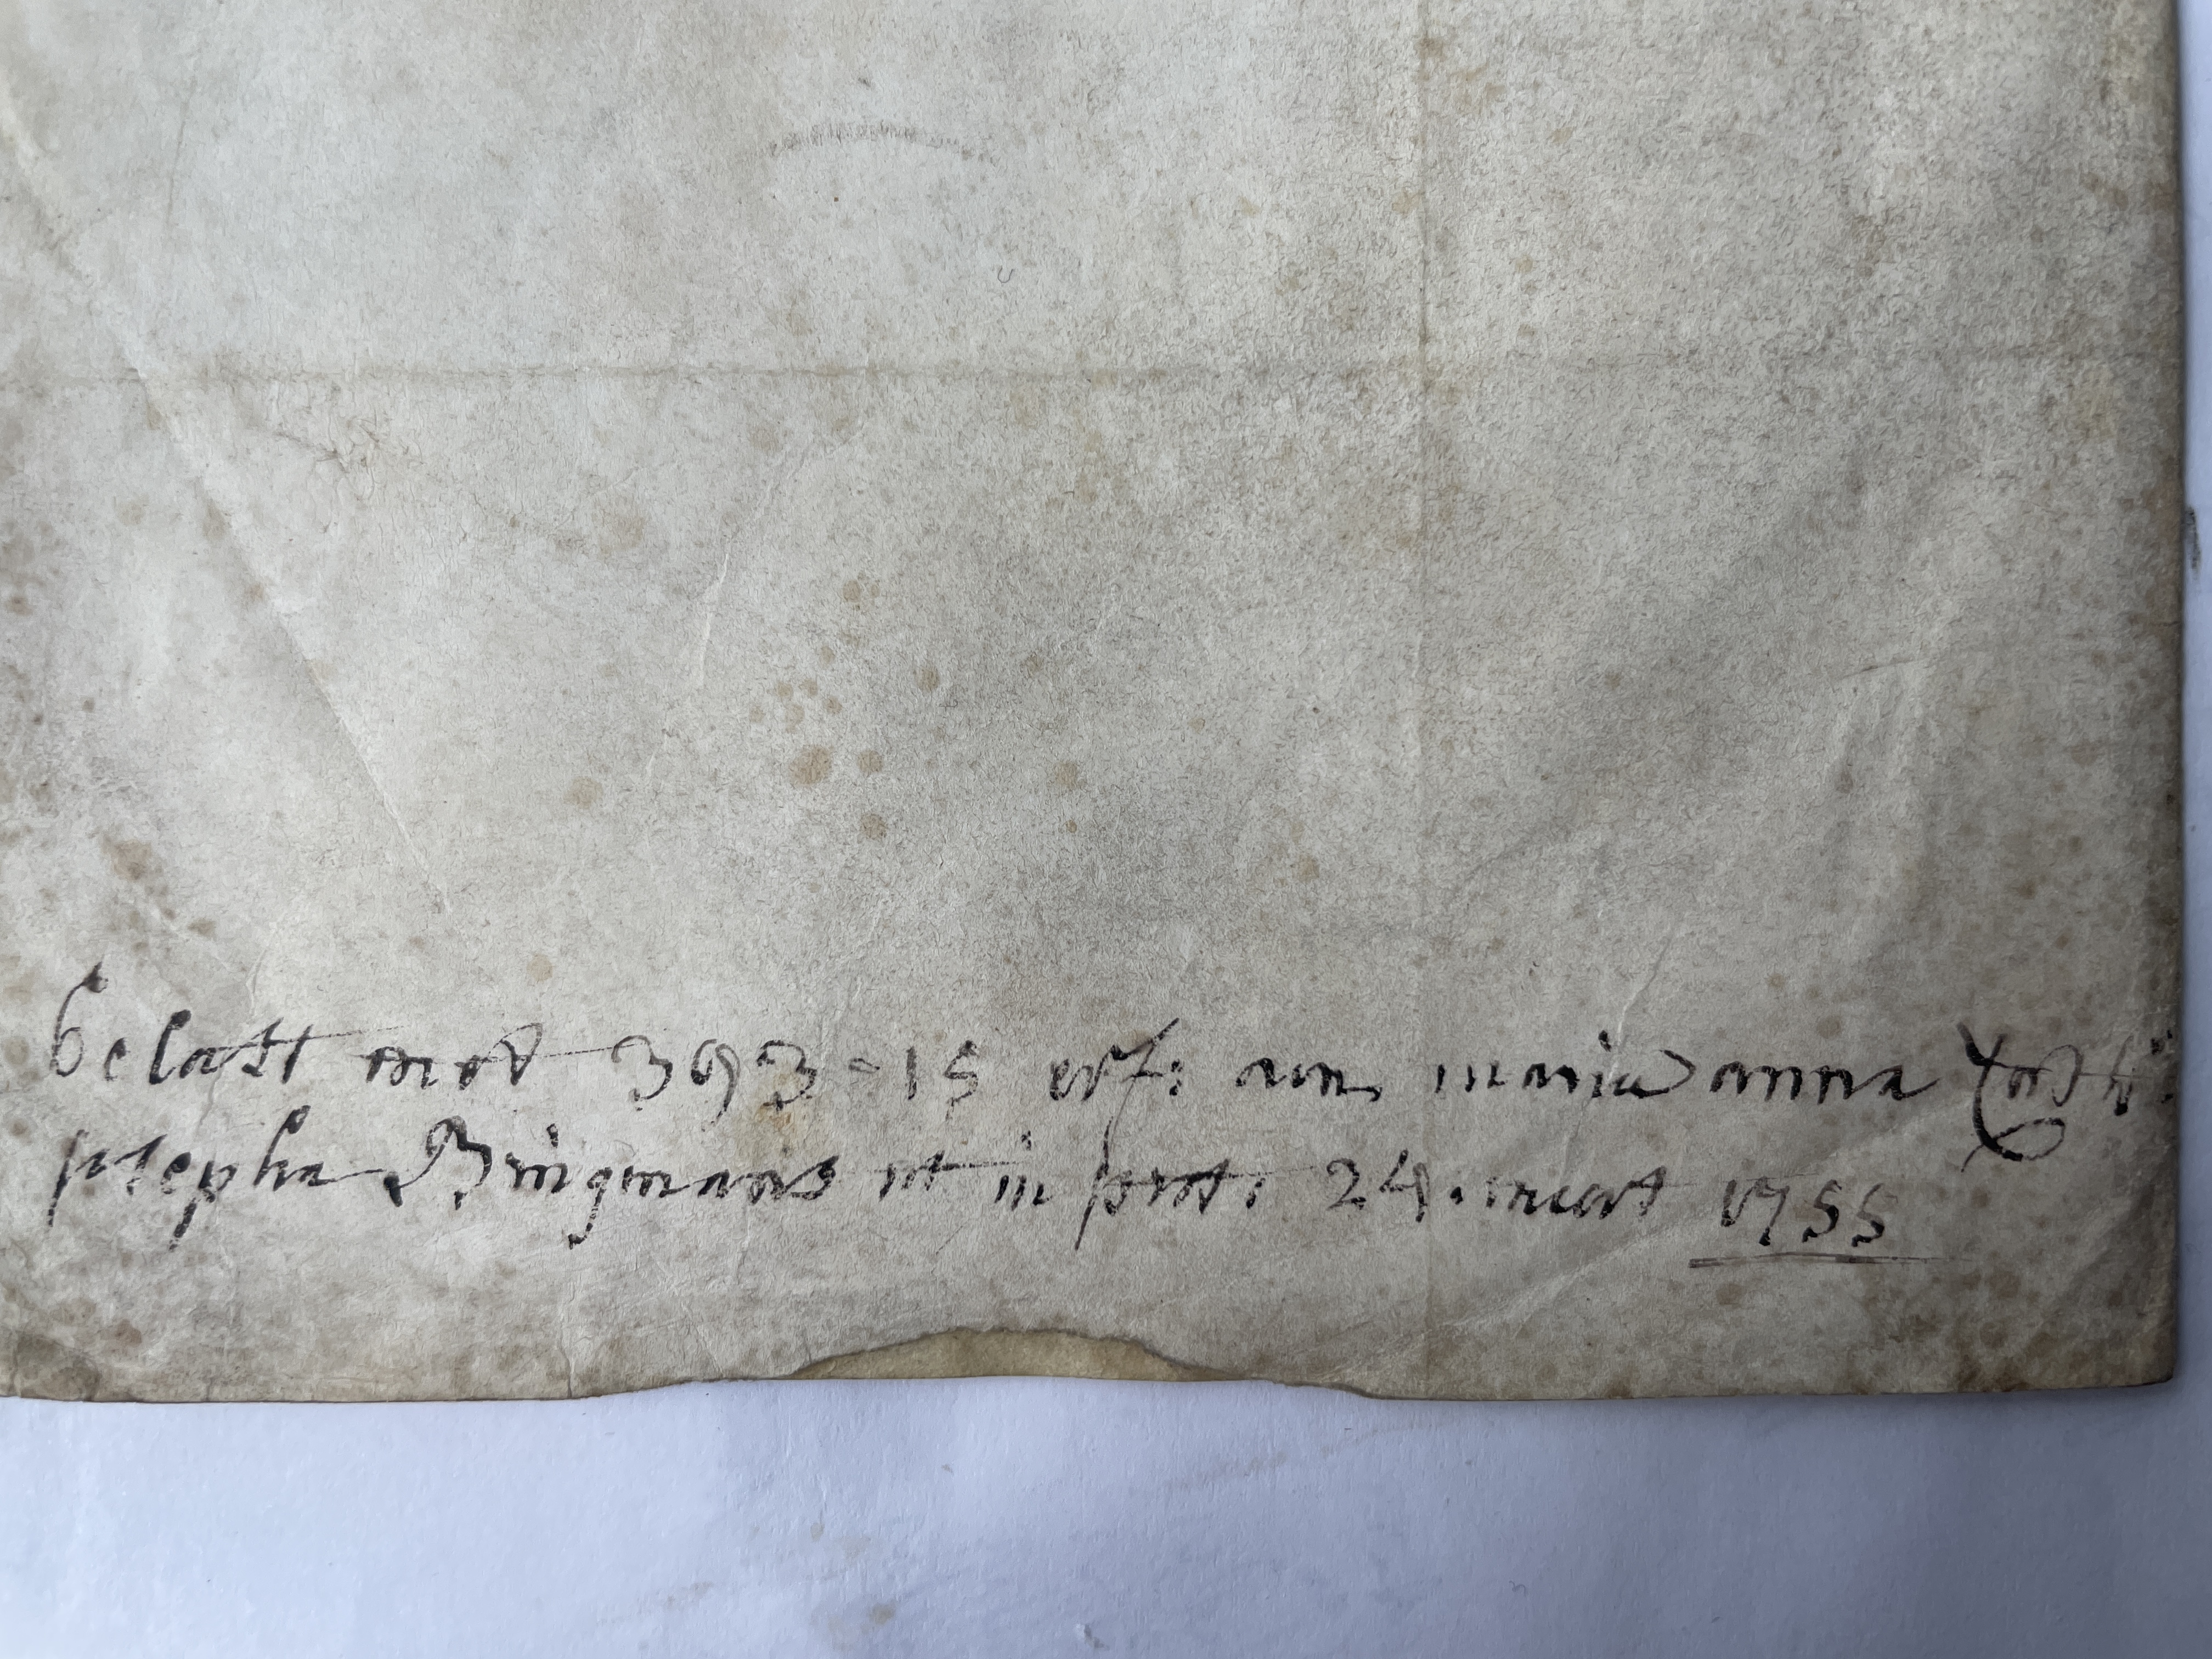 belast met 393-15 erf: aen maria anna
josepha Bringmans ut in prot: 24. meert 1755